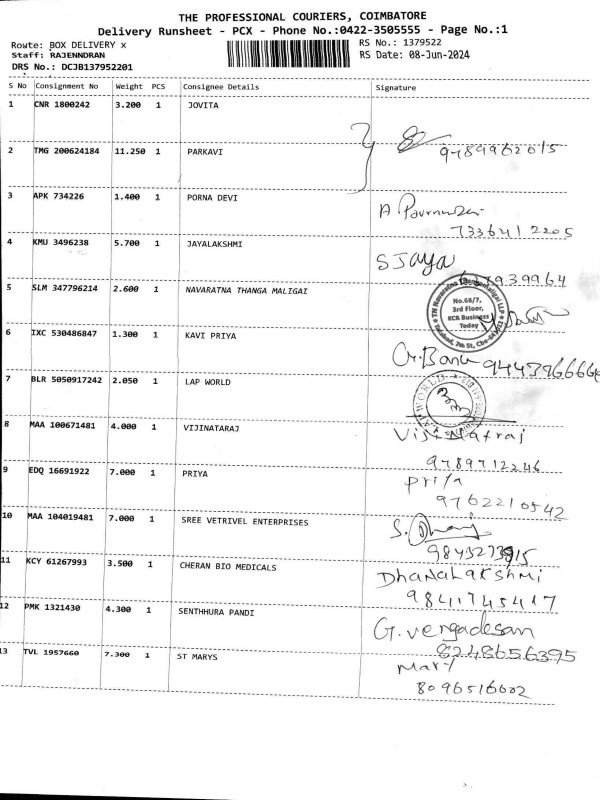 THE PROFESSIONAL COURIERS, COIMBATORE
Delivery Runsheet - PCX - Phone No.:0422-3505555 - Page No.:1
Route: BOX DELIVERY x RS No.: 1379522
Staff: RAJENNDRAN RS Date: 08-Jun-2024
DRS No.: DCJB137952201
S No Consignment No Weight PCS Consignee Details Signature
1 CNR 1800242 3.200 1 JOVITA
2 TMG 200624184 11.250 1 PARKAVI 9789962615
3 APK 734226 1.400 1 PORNA DEVI A
7336412205
4 KMU 3496238 5.700 1 JAYALAKSHMI S Jaya
5 SLM 347796214 2.600 1 NAVARATNA THANGA MALIGAI
No.68/7,
3rd Floor,
KCR Business
Today
6 IXC 530486847 1.300 1 KAVI PRIYA
7 BLR 5050917242 2.050 1 LAP WORLD
8 MAA 100671481 4.000 1 VIJINATARAJ Viji Natraj
9789712246
9 EDQ 16691922 7.000 1 PRIYA Priya
9762210542
10 MAA 104019481 7.000 1 SREE VETRIVEL ENTERPRISES
11 KCY 61267993 3.500 1 CHERAN BIO MEDICALS Dhanalakshmi
9841745417
12 PMK 1321430 4.300 1 SENTHHURA PANDI G. vergadesan
8248656395
13 TVL 1957660 7.300 1 ST MARYS Mary
8096516602